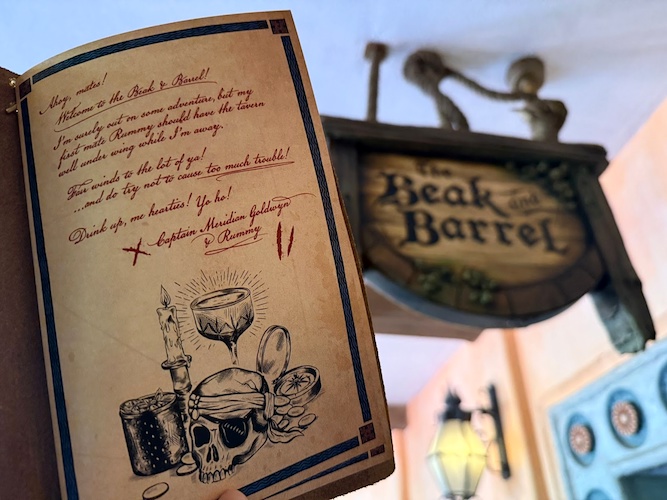 Ahoy, mates!
Welcome to the Beak & Barrel!
I'm surely out on some adventure, but my
first mate Rummy should have the tavern
well under wing while I'm away.
Fair winds to the lot of ya!
...and do try not to cause too much trouble!
Drink up, me hearties! Yo ho!
Captain Meridian Goldwyn
& Rummy
The
Beak and
Barrel